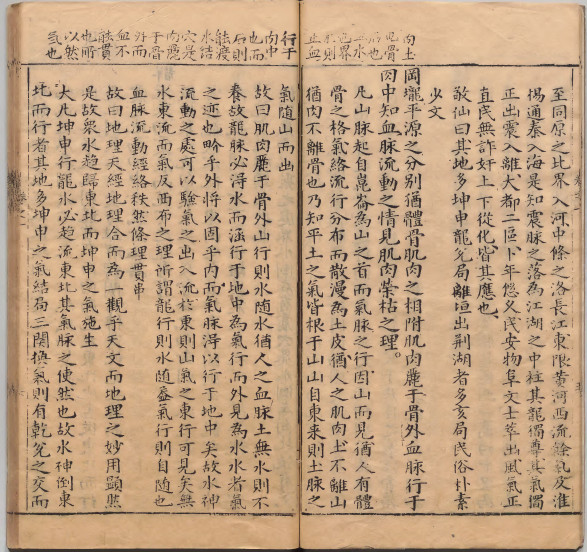 至同原之比界入河中條之洛長江東限黃河西流餘氣及淮
楊通泰入海是知震脉之落為江湖之中柱其龍獨尊其氣獨
正出震入離大都二區卜年悠久民安物阜文士萃出風氣正
直民無詐奸上下從化皆其應也
敬仙曰其地多坤申龍兌局離垣出荆湖者多亥局民俗朴素
少文
岡壠平源之分别猶體骨肌肉之相附肌肉麗于骨外血脉行于
肉中知血脉流動之情見肌肉荣枯之理。
凡山脉起自崑崙為山之首而氣脉之行因山而見猶人有體
骨之格氣絡流行分布而散漫為土皮猶人之肌肉土不離山
猶肉不離骨也乃知平土之氣皆根于山山自東来則土脉之
向土
肌骨
止血
氣随山而出
故曰肌肉麗于骨外山行則水随水猶人之血脉土無水則不
養故龍脉必得水而涵行于地中為氣行而外見為水水者氣
之迹也畍乎外将以固乎内而氣脉得以行于地中矣故水神
流動之處可以驗氣之出入流於東則山氣之東行可見矣無
水東流而氣反西布之理所謂龍行則水随盖氣行則自随也
血脉流動經絡秩然條理貫串
故曰地理天經地理合而為一觀乎天文而地理之妙用顕然
是故衆水趋歸東北而坤申之氣施生
大凡坤申行龍水必趋流東北其氣脉之使然也故水神倒東
北而行者其地多坤申之氣結局三閞換氣則有乾兌之交而
行于
肉中
也而
石則
能渡
水結
穴是
肉麗
于骨
外而
血不
能貫
也所
以然
氣也